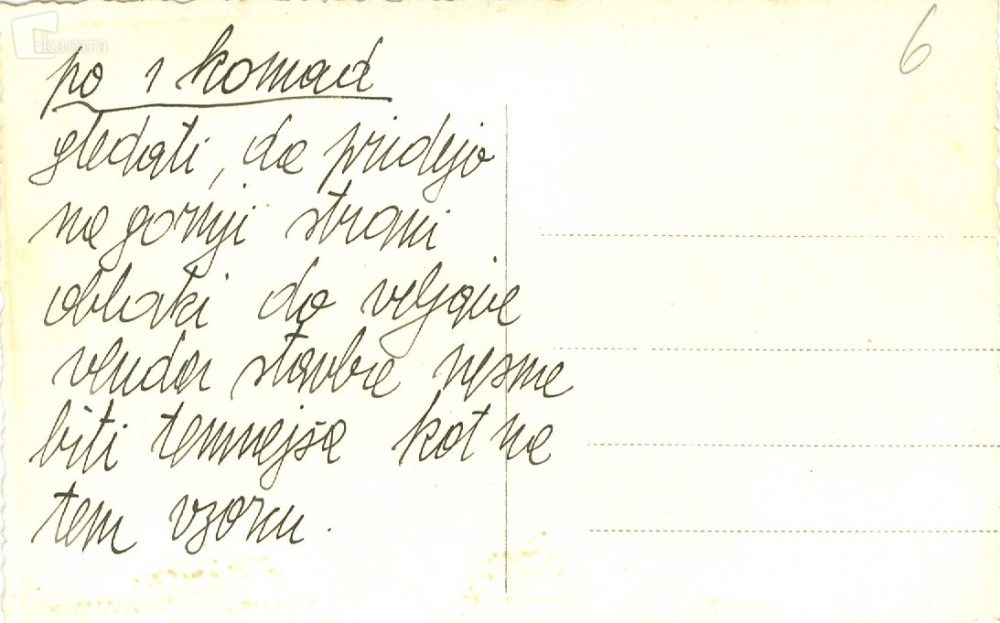 kamra
6
po 1 komad
gledati, da pridejo
na gornji strani
oblaki do veljave
vendar stavba nesme
biti temnejša kot na
tem vzorcu.